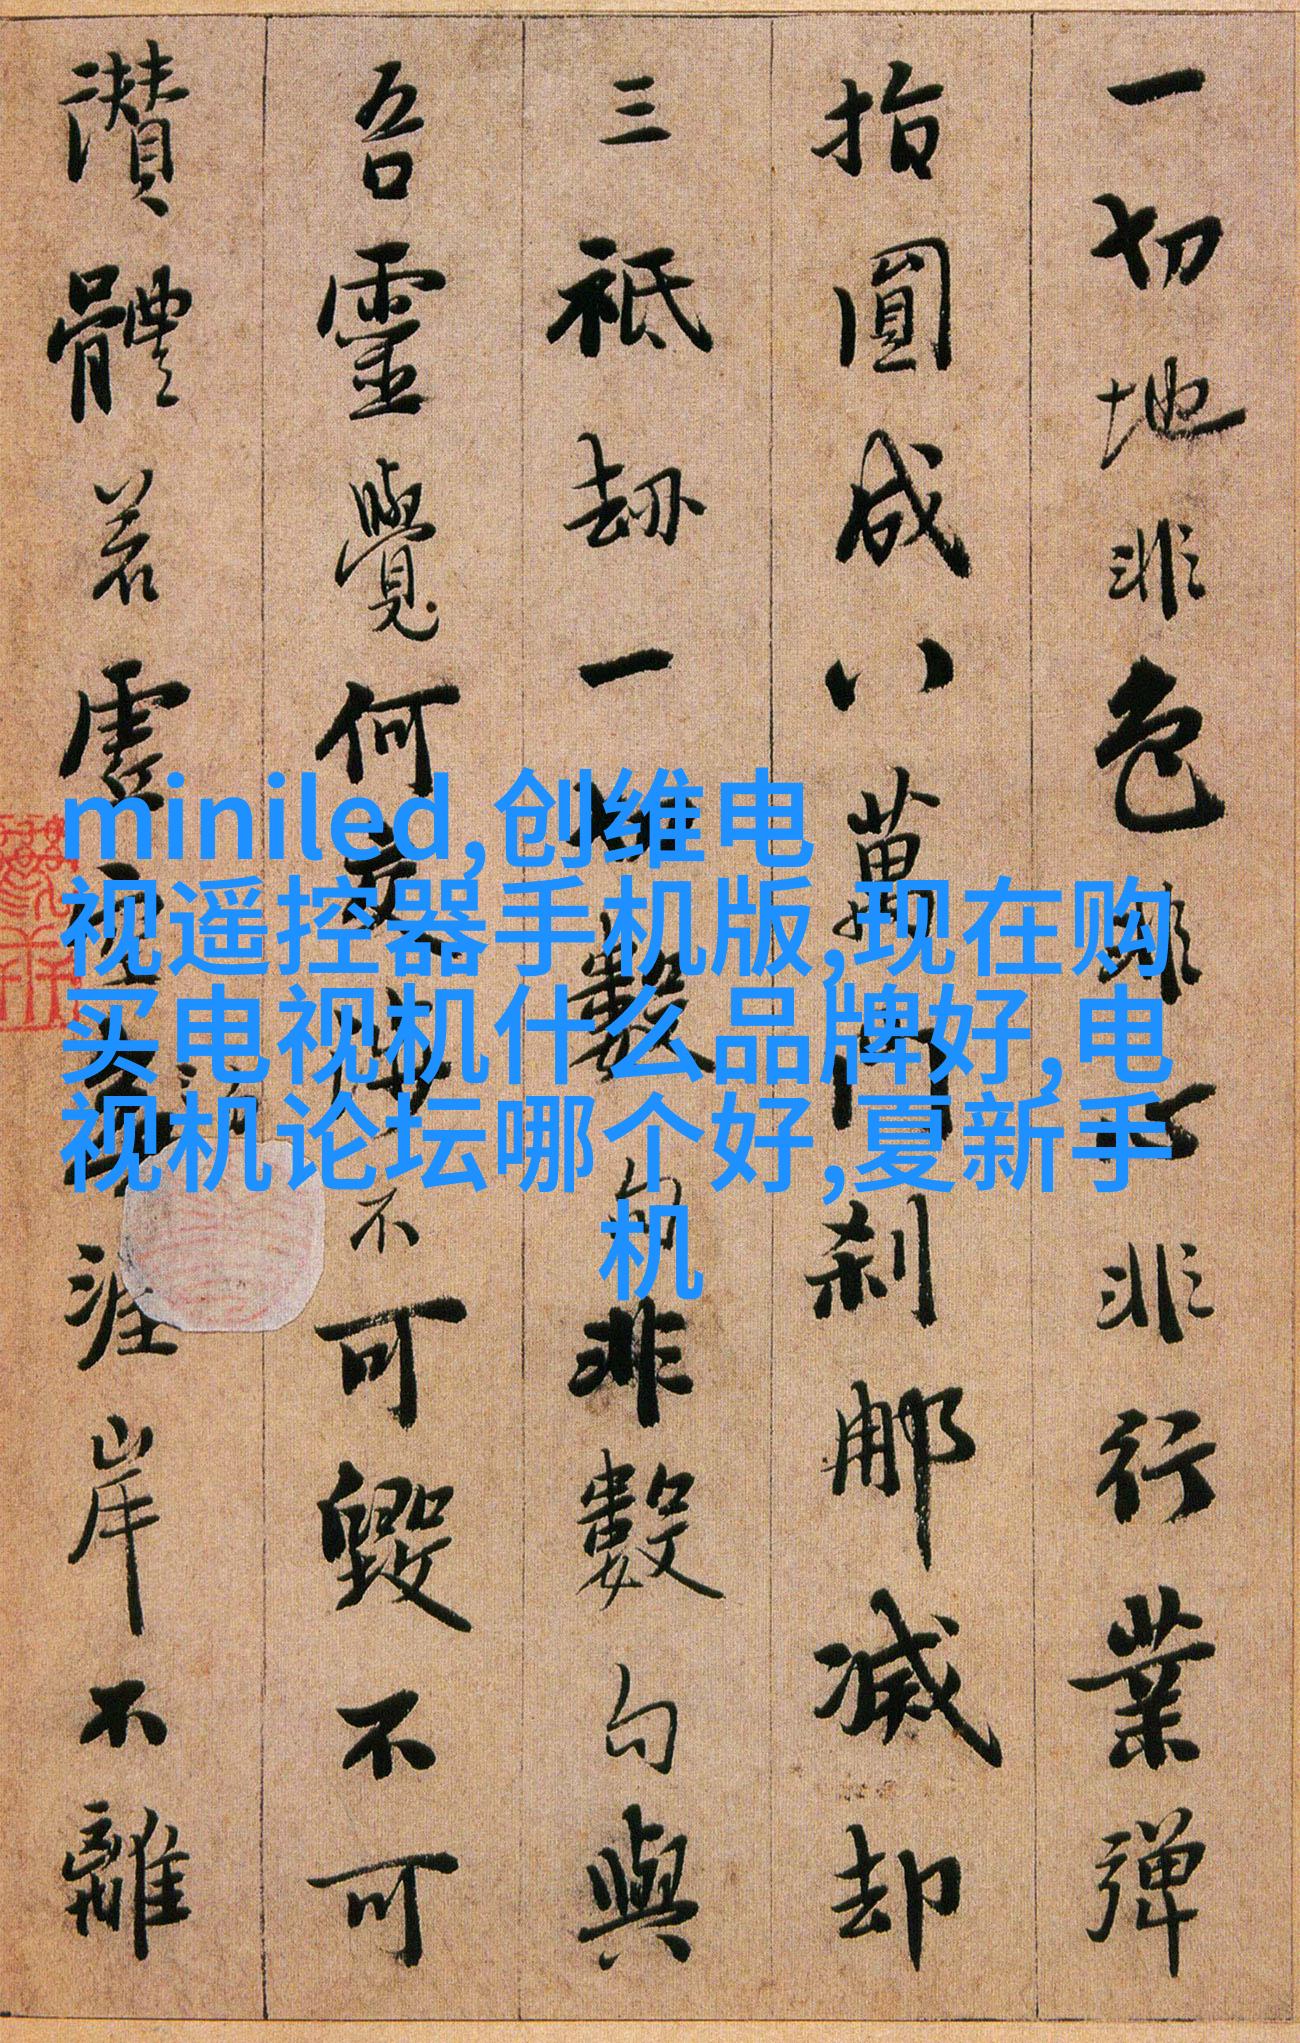 一切地非色非心非行業彈
指圓成八萬門刹那滅却
三祇劫一切數句非數句與
吾靈覺何交涉不可毀不可
讚體若虛空涯岸不離
miniled,创维电
视遥控器手机版,现在购
买电视机什么品牌好,电
视机论坛哪个好,夏新手
机